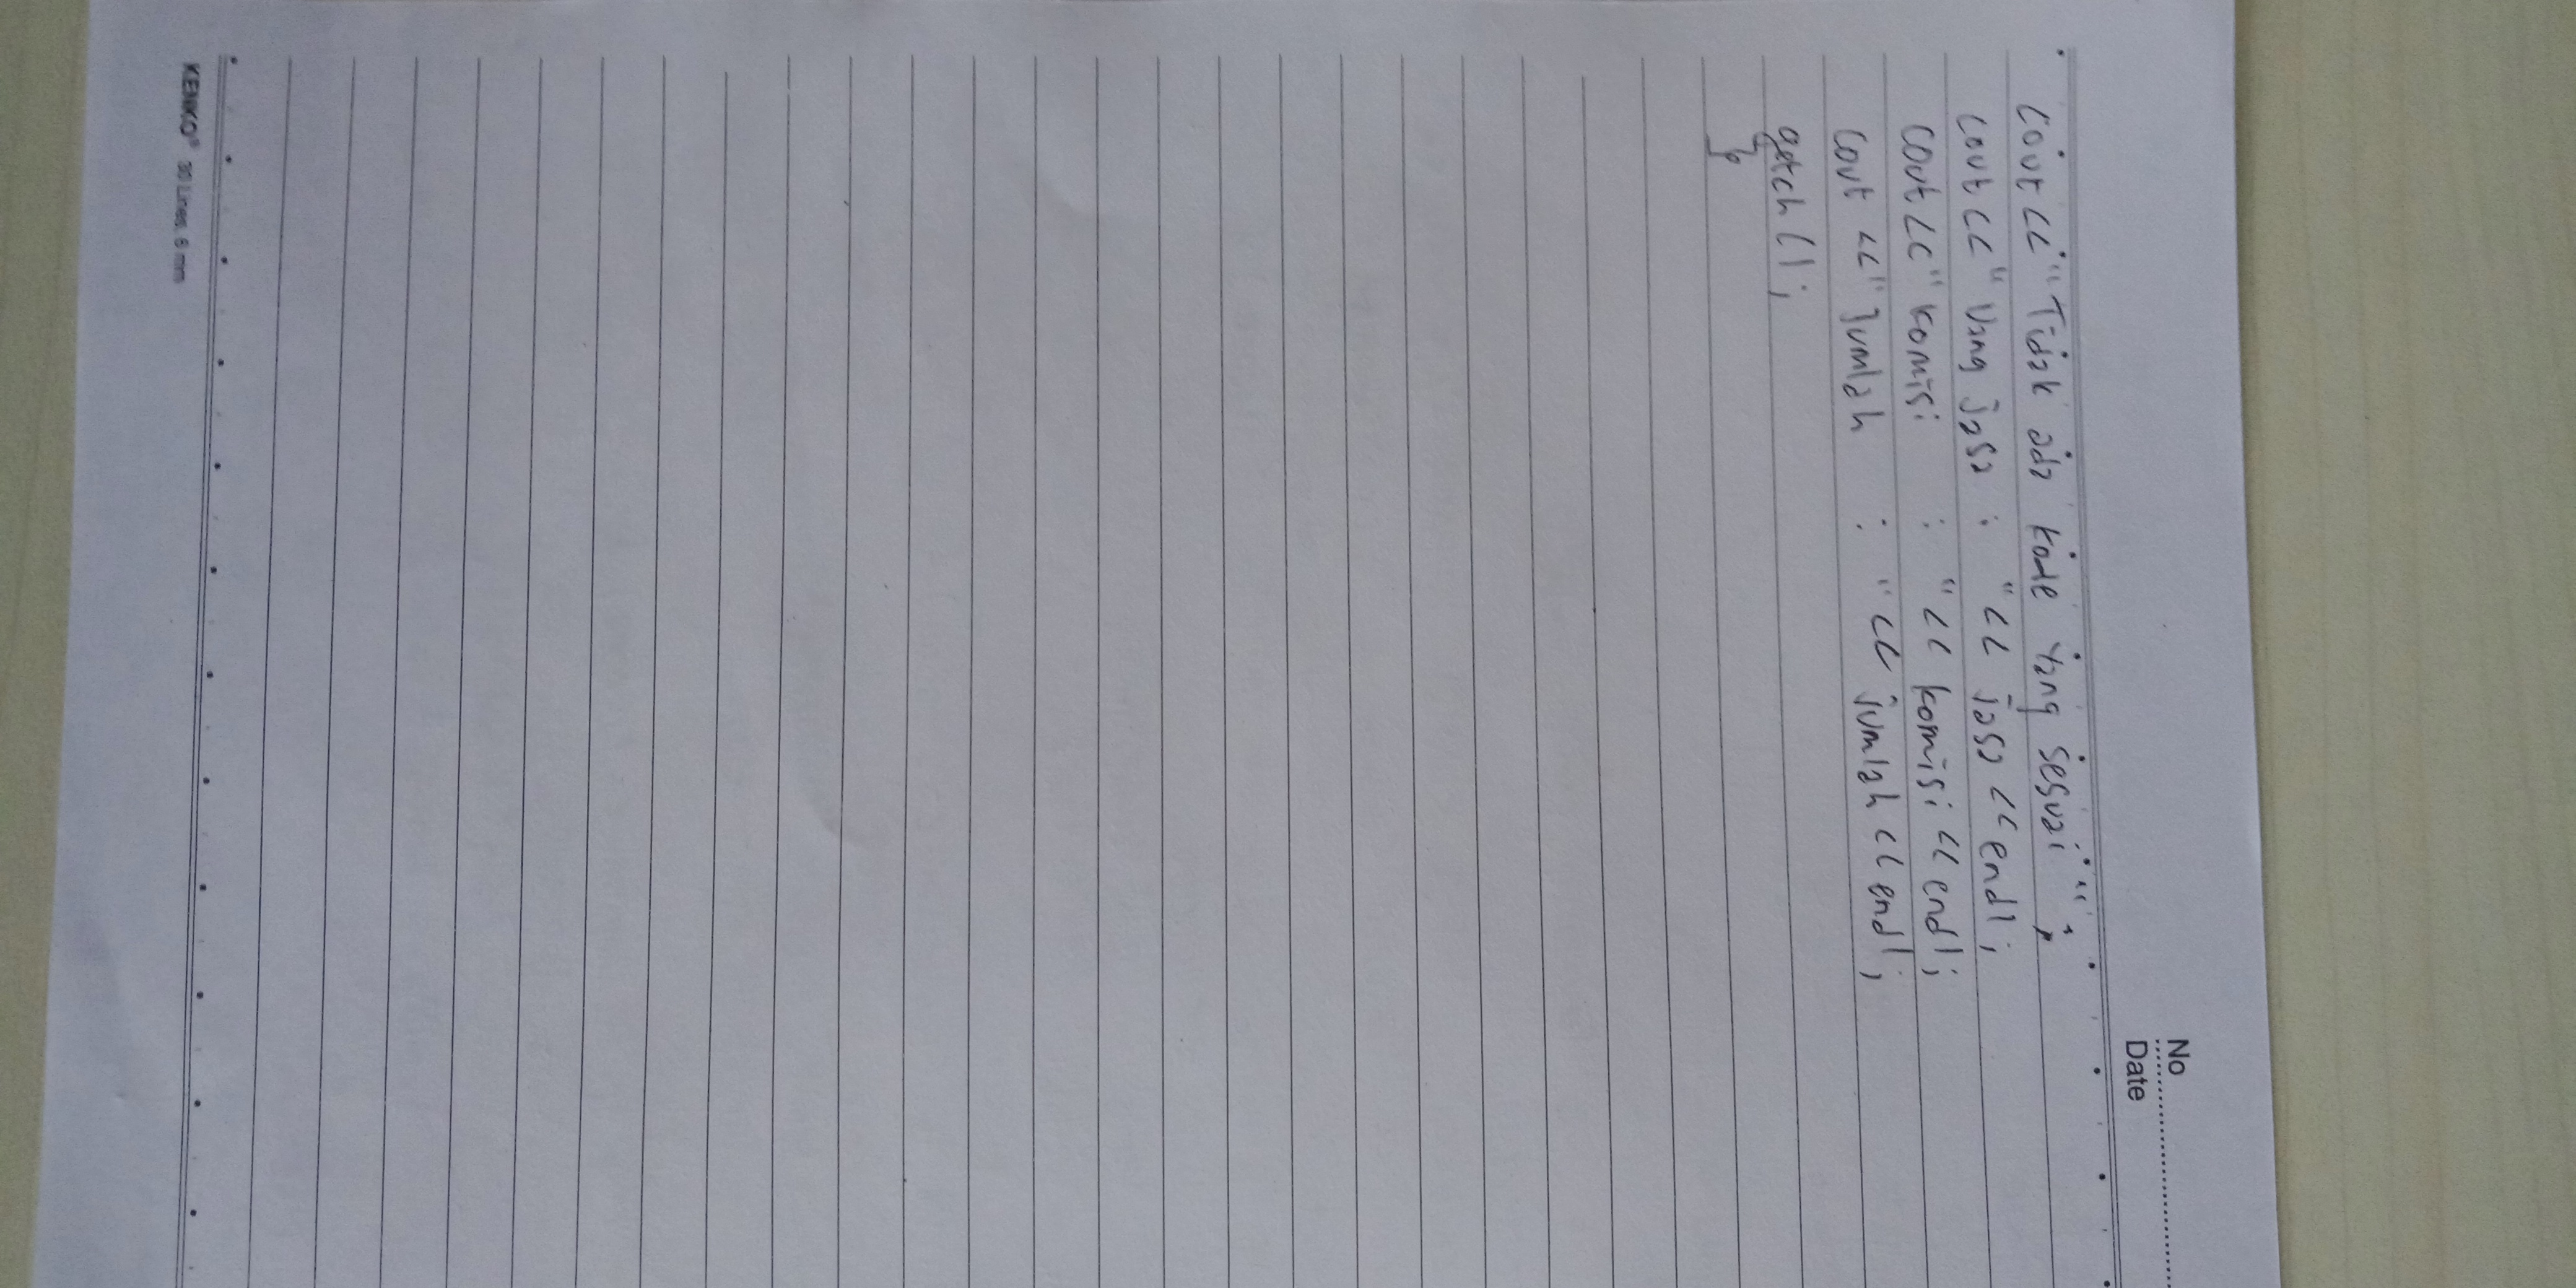 No
Date
cout << "Tidak ada kode yang sesuai" ;
cout << "Uang jasa : " << jasa << endl;
cout << "komisi : " << komisi << endl;
cout << "Jumlah : " << jumlah << endl;
getch();
}
KENKO® 30 Lines, 6 mm